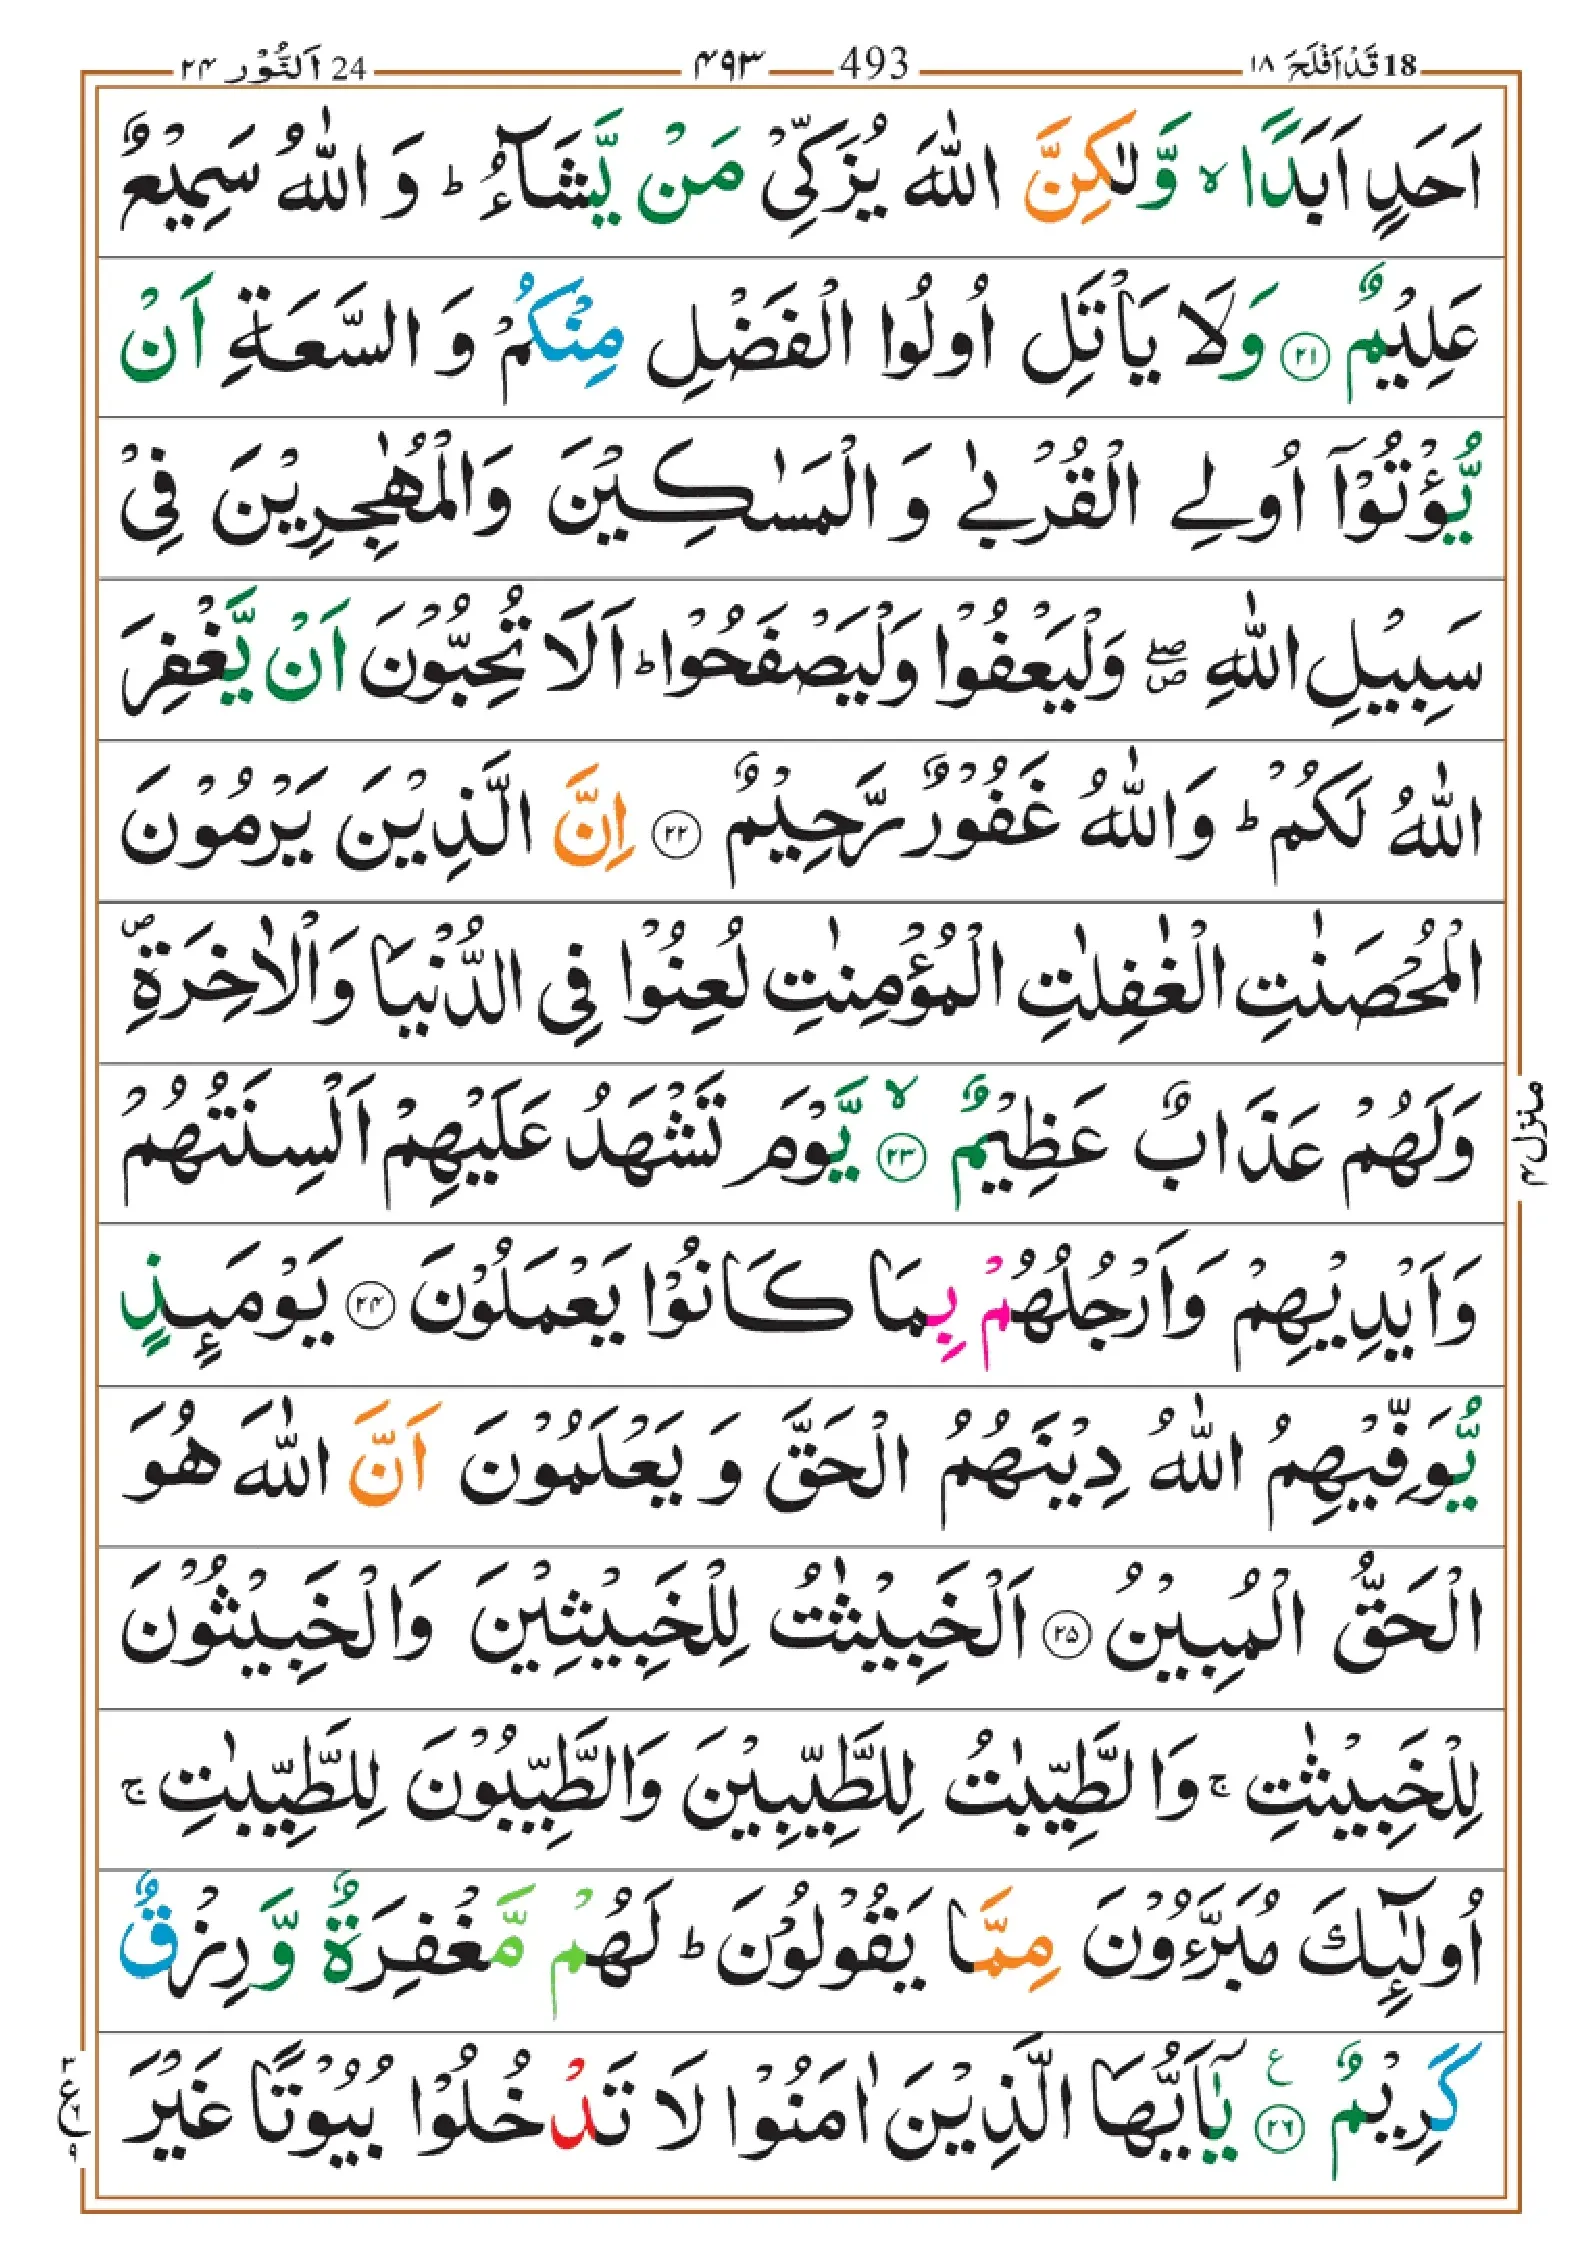 18 قَدْ اَفْلَحَ ١٨ 493 ۴۹۳ 24 اَلنُّوْر ۲۴
اَحَدٍ اَبَدًا ۙ وَّلٰكِنَّ اللّٰهَ يُزَكِّىْ مَنْ يَّشَآءُ ؕ وَ اللّٰهُ سَمِيْعٌ
عَلِيْمٌ ﴿۲۱﴾ وَلَا يَاْتَلِ اُولُوا الْفَضْلِ مِنْكُمْ وَ السَّعَةِ اَنْ
يُّؤْتُوْۤا اُولِى الْقُرْبٰى وَ الْمَسٰكِيْنَ وَالْمُهٰجِرِيْنَ فِىْ
سَبِيْلِ اللّٰهِ ۖ وَلْيَعْفُوْا وَلْيَصْفَحُوْا ؕ اَلَا تُحِبُّوْنَ اَنْ يَّغْفِرَ
اللّٰهُ لَكُمْ ؕ وَاللّٰهُ غَفُوْرٌ رَّحِيْمٌ ﴿۲۲﴾ اِنَّ الَّذِيْنَ يَرْمُوْنَ
الْمُحْصَنٰتِ الْغٰفِلٰتِ الْمُؤْمِنٰتِ لُعِنُوْا فِى الدُّنْيَا وَالْاٰخِرَةِ ۪
وَلَهُمْ عَذَابٌ عَظِيْمٌ ﴿۲۳﴾ ۙ يَّوْمَ تَشْهَدُ عَلَيْهِمْ اَلْسِنَتُهُمْ
وَاَيْدِيْهِمْ وَاَرْجُلُهُمْ بِمَا كَانُوْا يَعْمَلُوْنَ ﴿۲۴﴾ يَوْمَىِٕذٍ
يُّوَفِّيْهِمُ اللّٰهُ دِيْنَهُمُ الْحَقَّ وَ يَعْلَمُوْنَ اَنَّ اللّٰهَ هُوَ
الْحَقُّ الْمُبِيْنُ ﴿۲۵﴾ اَلْخَبِيْثٰتُ لِلْخَبِيْثِيْنَ وَالْخَبِيْثُوْنَ
لِلْخَبِيْثٰتِ ۚ وَالطَّيِّبٰتُ لِلطَّيِّبِيْنَ وَالطَّيِّبُوْنَ لِلطَّيِّبٰتِ ۚ
اُولٰٓىِٕكَ مُبَرَّءُوْنَ مِمَّا يَقُوْلُوْنَ ؕ لَهُمْ مَّغْفِرَةٌ وَّرِزْقٌ
كَرِيْمٌ ﴿۲۶﴾ ع يٰۤاَيُّهَا الَّذِيْنَ اٰمَنُوْا لَا تَدْخُلُوْا بُيُوْتًا غَيْرَ
منزل ۴
۳ ع ۹